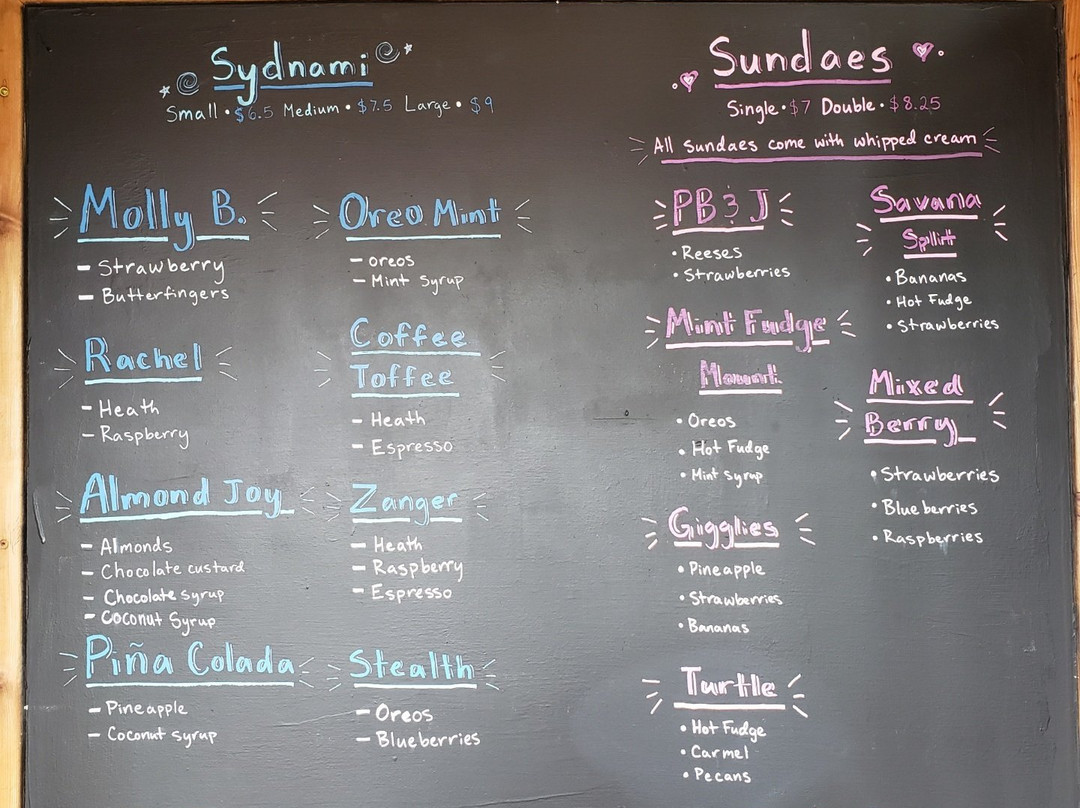 Sydnami
Small • $6.5 Medium • $7.5 Large • $9
Molly B.
- Strawberry
- Butterfingers
Rachel
- Heath
- Raspberry
Almond Joy
- Almonds
- Chocolate custard
- Chocolate syrup
- Coconut Syrup
Piña Colada
- Pineapple
- Coconut syrup
Oreo Mint
- oreos
- Mint Syrup
Coffee
Toffee
- Heath
- Espresso
Zanger
- Heath
- Raspberry
- Espresso
Stealth
- Oreos
- Blueberries
Sundaes
Single • $7 Double • $8.25
All sundaes come with whipped cream
PB & J
• Reeses
• Strawberries
Mint Fudge
• Oreos
• Hot Fudge
• Mint syrup
Gigglies
• Pineapple
• Strawberries
• Bananas
Turtle
• Hot Fudge
• Carmel
• Pecans
Savana
Split
• Bananas
• Hot Fudge
• Strawberries
Mixed
Berry
• Strawberries
• Blueberries
• Raspberries